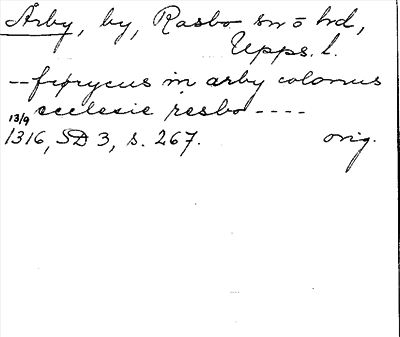 Årby, by, Rasbo sn ö hd,
Upps. l.
-- fiprycus in arby colonus
ecclesie resbo ----
13/9
1316, SD 3, s. 267. orig.